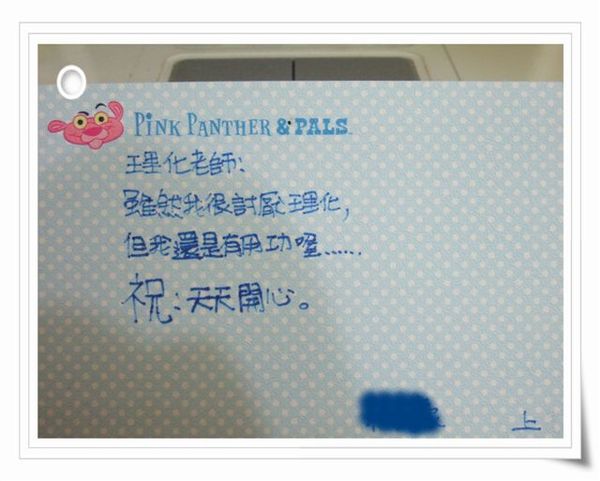 PINK PANTHER & PALS
理化老師:
雖然我很討厭理化,
但我還是有用功喔......
祝:天天開心。
上